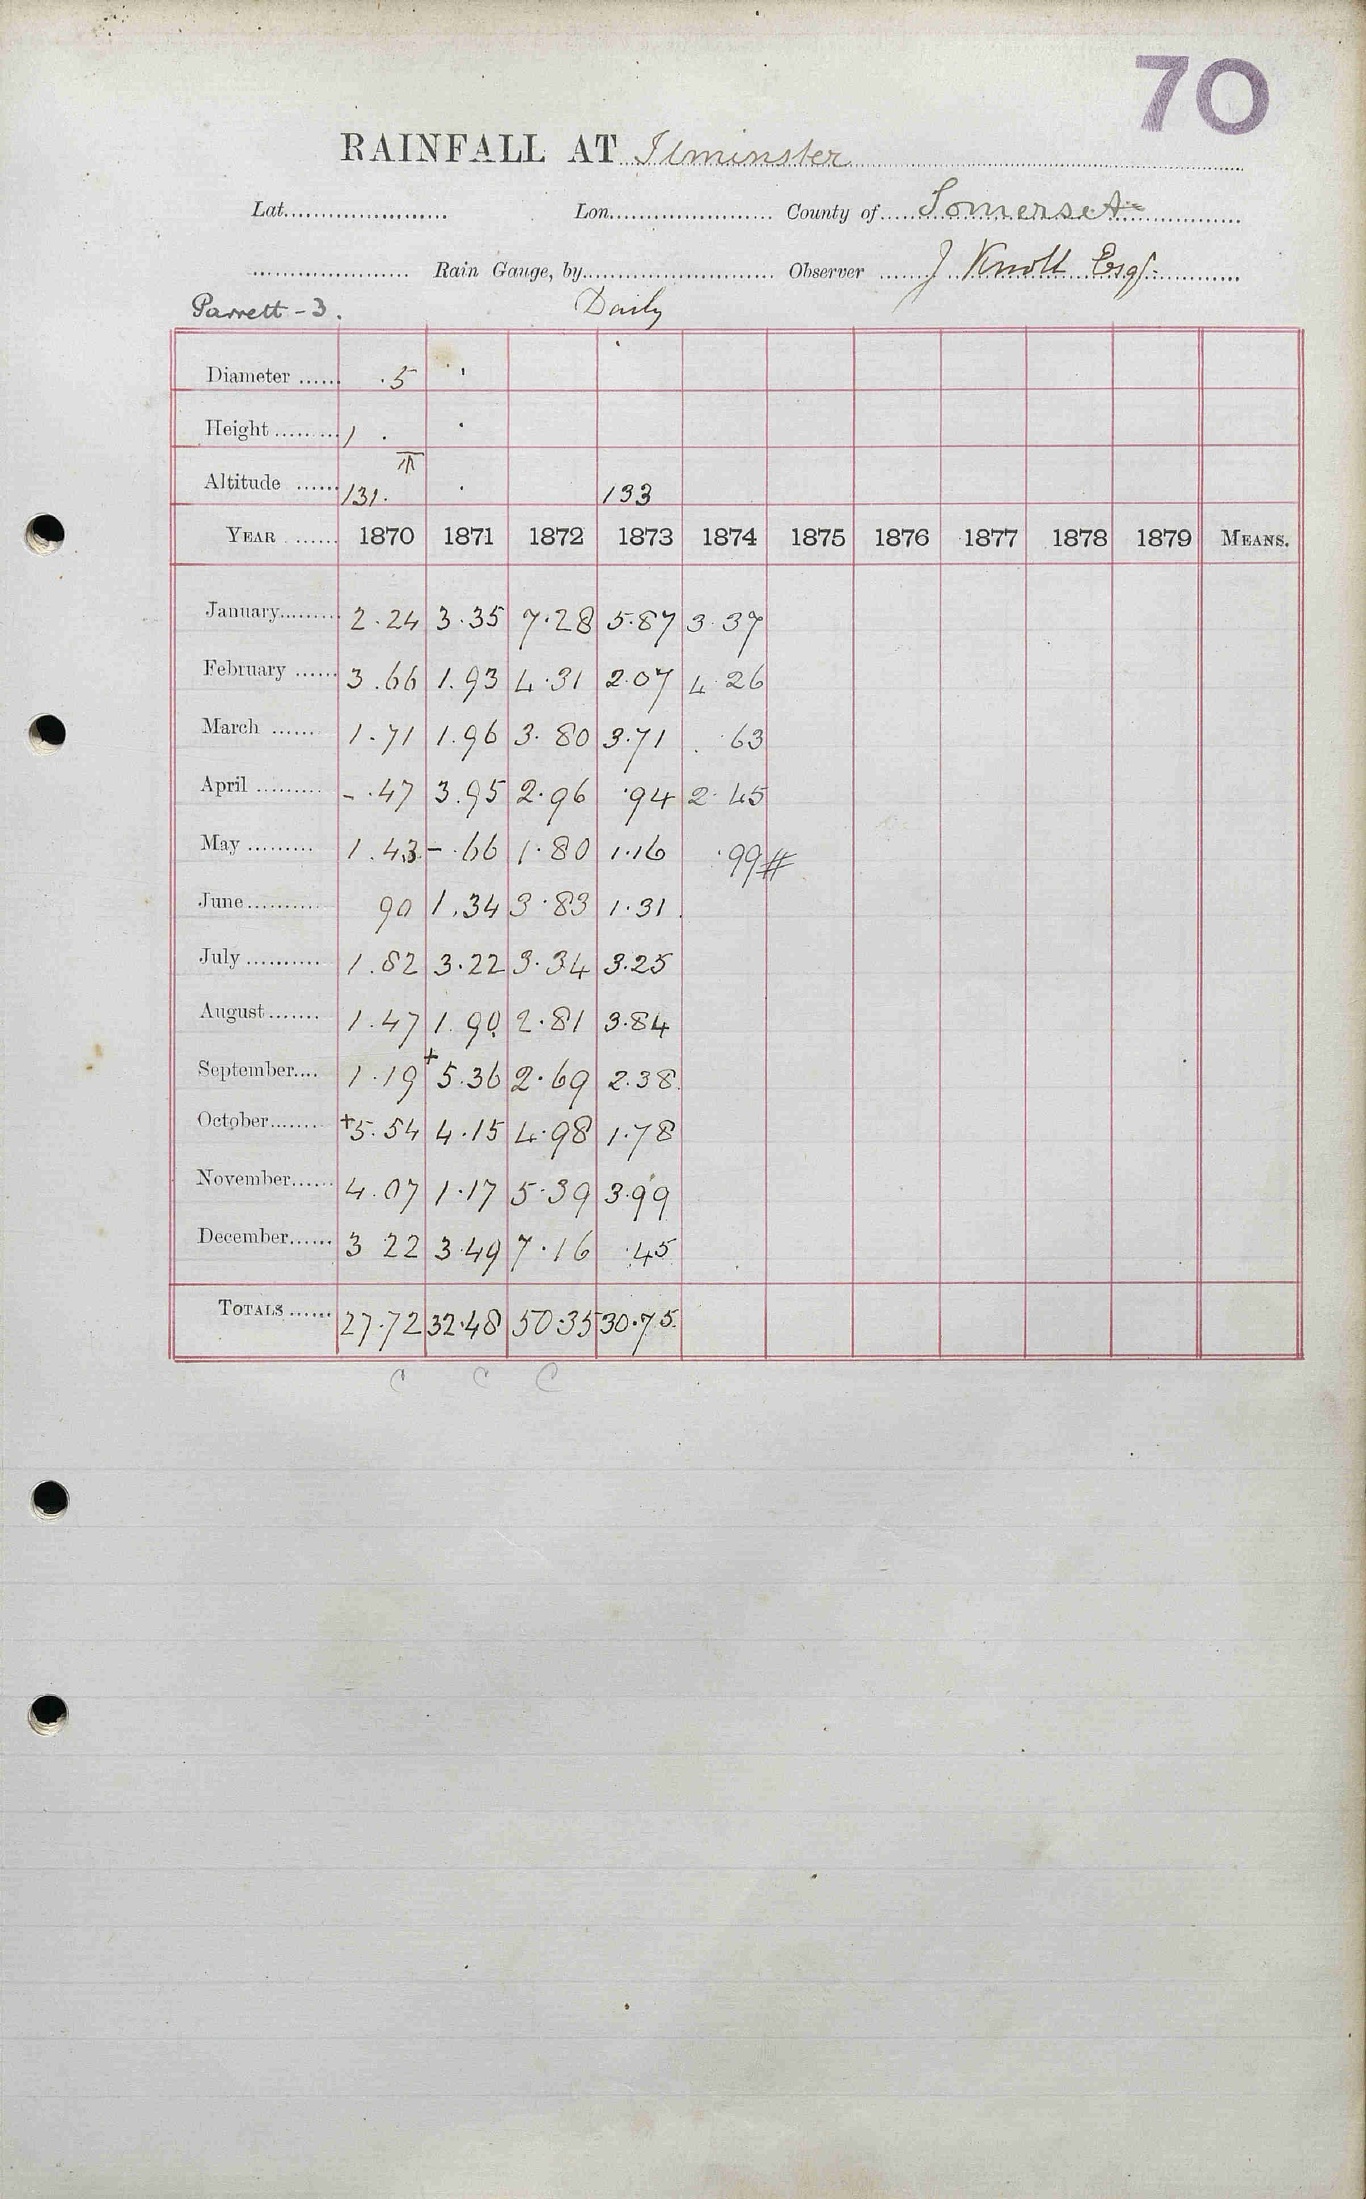 70
RAINFALL AT Ilminster
Lat. Lon. County of Somerset
Rain Gauge, by Observer J Knott Esq.
Parrett - 3. Daily
Diameter ...... .5
Height ......... 1 .
Altitude ...... 131. 133
YEAR ...... 1870 1871 1872 1873 1874 1875 1876 1877 1878 1879 MEANS.
January......... 2.24 3.35 7.28 5.87 3.37
February ...... 3.66 1.93 4.31 2.07 4.26
March ...... 1.71 1.96 3.80 3.71 .63
April ......... - .47 3.95 2.96 .94 2.45
May ......... 1.43 - .66 1.80 1.16 .99#
June............ 90 1.34 3.83 1.31
July .......... 1.82 3.22 3.34 3.25
August....... 1.47 1.90 2.81 3.84
September.... 1.19 +5.36 2.69 2.38
October........ +5.54 4.15 4.98 1.78
November...... 4.07 1.17 5.39 3.99
December...... 3 22 3.49 7.16 .45
TOTALS ...... 27.72 32.48 50.35 30.75
C C C